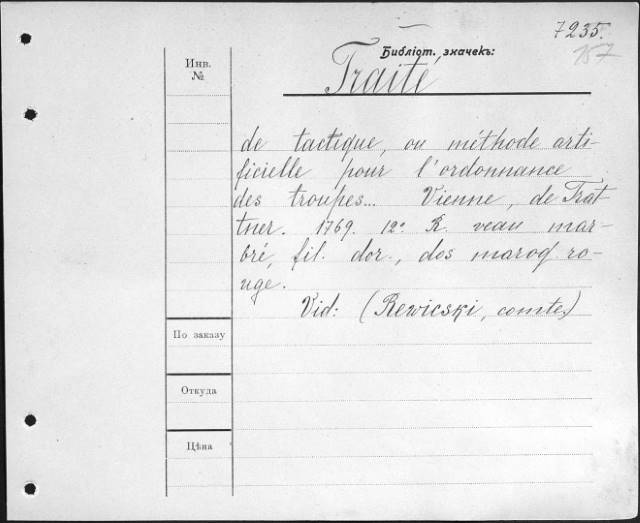 7235.
157
Библіот. значекъ:
Инв.
№
Traité
de tactique, ou méthode arti-
ficielle pour l'ordonnance
des troupes... Vienne, de Trat
tner. 1769. 12° R. veau mar-
bré, fil. dor., dos maroq. ro-
uge.
Vid: (Rewicski, comte)
По заказу
Откуда
Цѣна